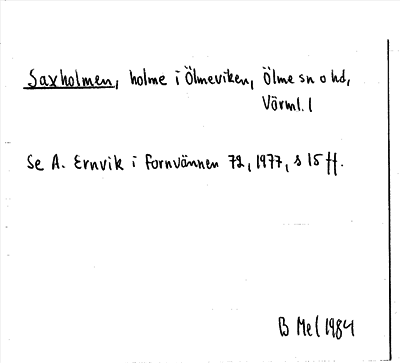 Saxholmen, holme i Ölmeviken, Ölme sn o hd,
Värml. l
Se A. Ernvik i Fornvännen 72, 1977, s 15 ff.
B Mel 1984